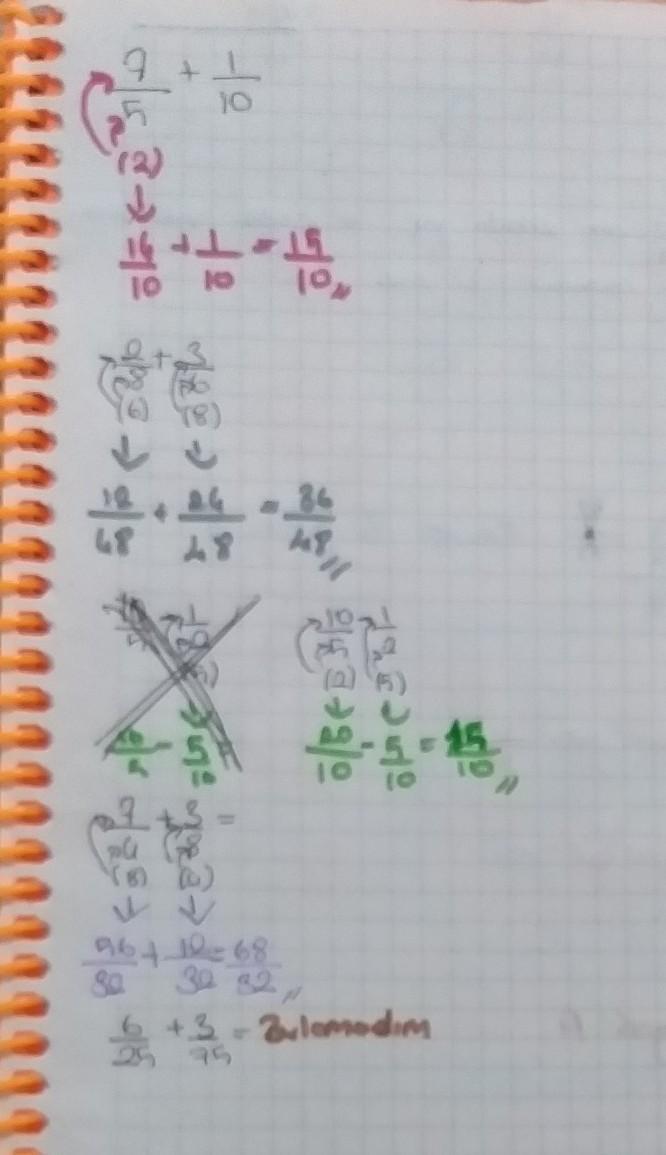 7/5 + 1/10
(2)
14/10 + 1/10 = 15/10
2/8 + 3/6
(6) (8)
12/48 + 24/48 = 36/48
10/5 1/2
(2) (5)
20/10 - 5/10 = 15/10
7/4 + 3/8 =
(8) (4)
56/32 + 12/32 = 68/32
6/25 + 3/75 = Bulamadım